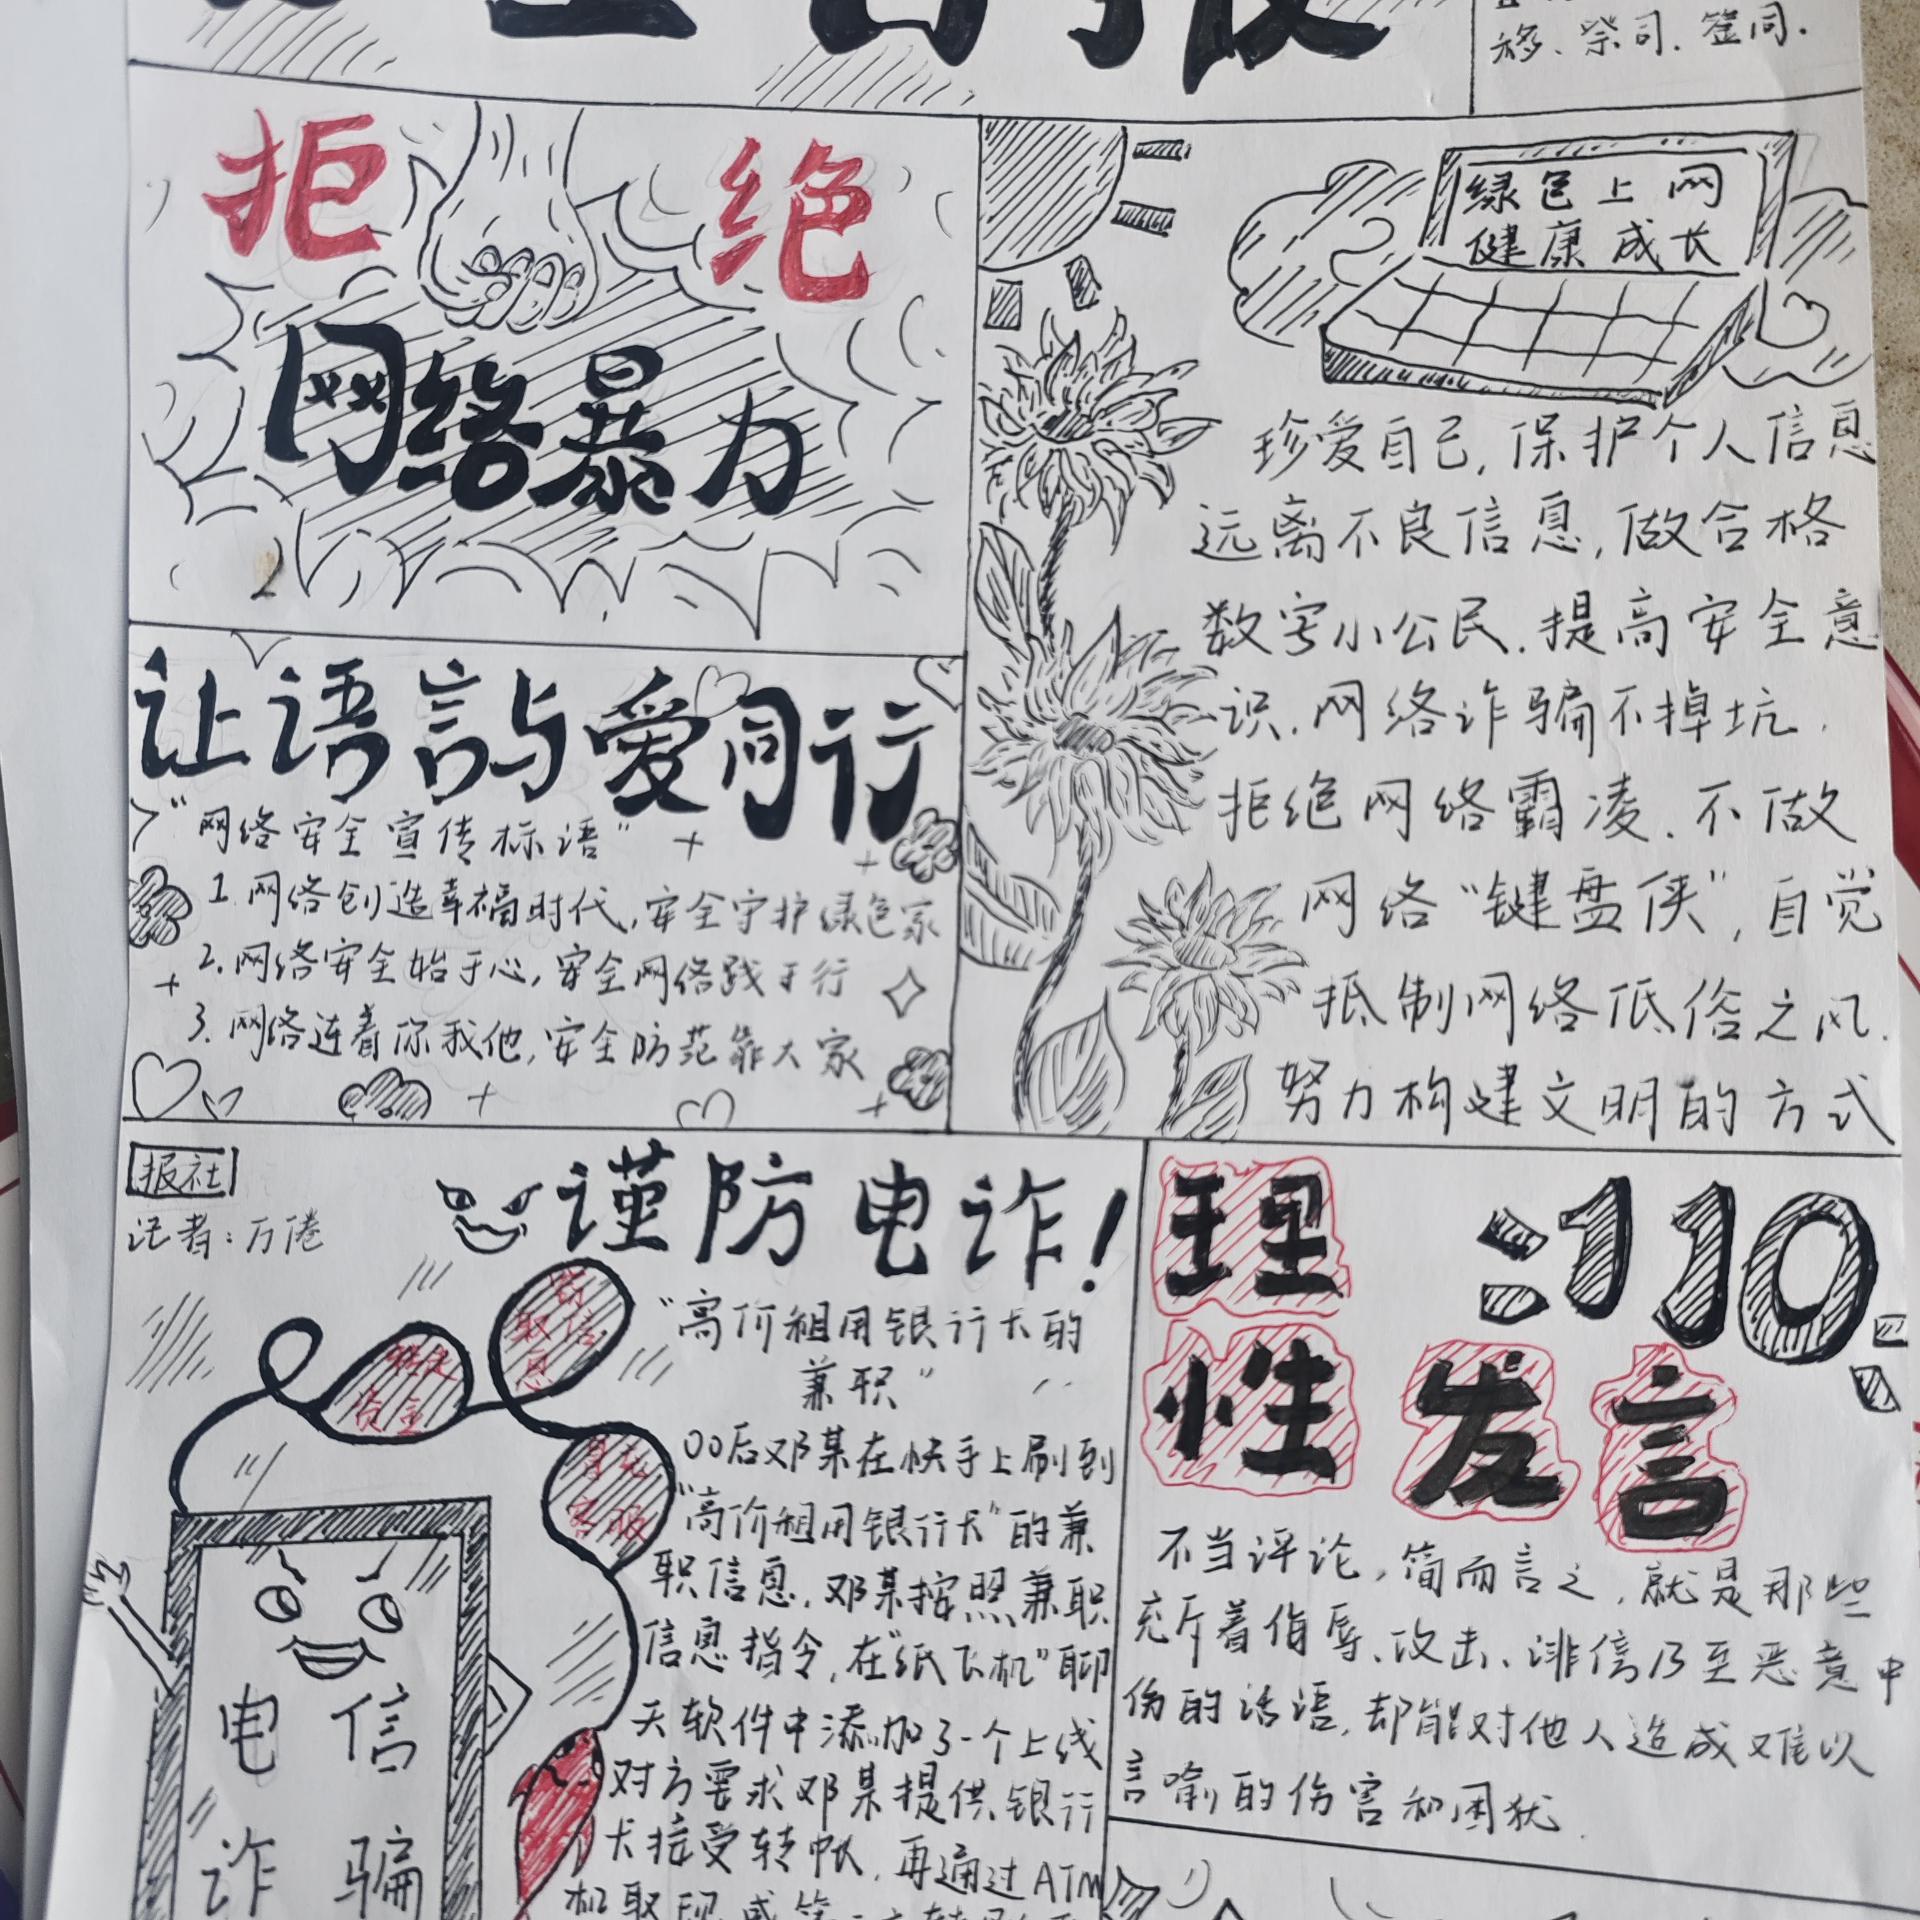 移、祭司、签同.
拒绝
网络暴力
绿色上网
健康成长
珍爱自己,保护个人信息
远离不良信息,做合格
数字小公民.提高安全意
识.网络诈骗不掉坑.
拒绝网络霸凌.不做
网络“键盘侠”,自觉
抵制网络低俗之风.
努力构建文明的方式
让语言与爱同行
“网络安全宣传标语”
1.网络创造幸福时代,安全守护绿色家
2.网络安全始于心,安全网络践于行
3.网络连着你我他,安全防范靠大家
报社
记者:万倦
谨防电诈!
“高价租用银行卡的
兼职”
00后邓某在快手上刷到
“高价租用银行卡”的兼
职信息,邓某按照兼职
信息指令,在“纸飞机”聊
天软件中添加了一个上线
对方要求邓某提供银行
卡接受转帐,再通过ATM
机取现
取信息
客服
电信
诈骗
:110
理性发言
不当评论,简而言之,就是那些
充斥着侮辱、攻击、诽信乃至恶意中
伤的话语,却能对他人造成难以
言喻的伤害和困扰.